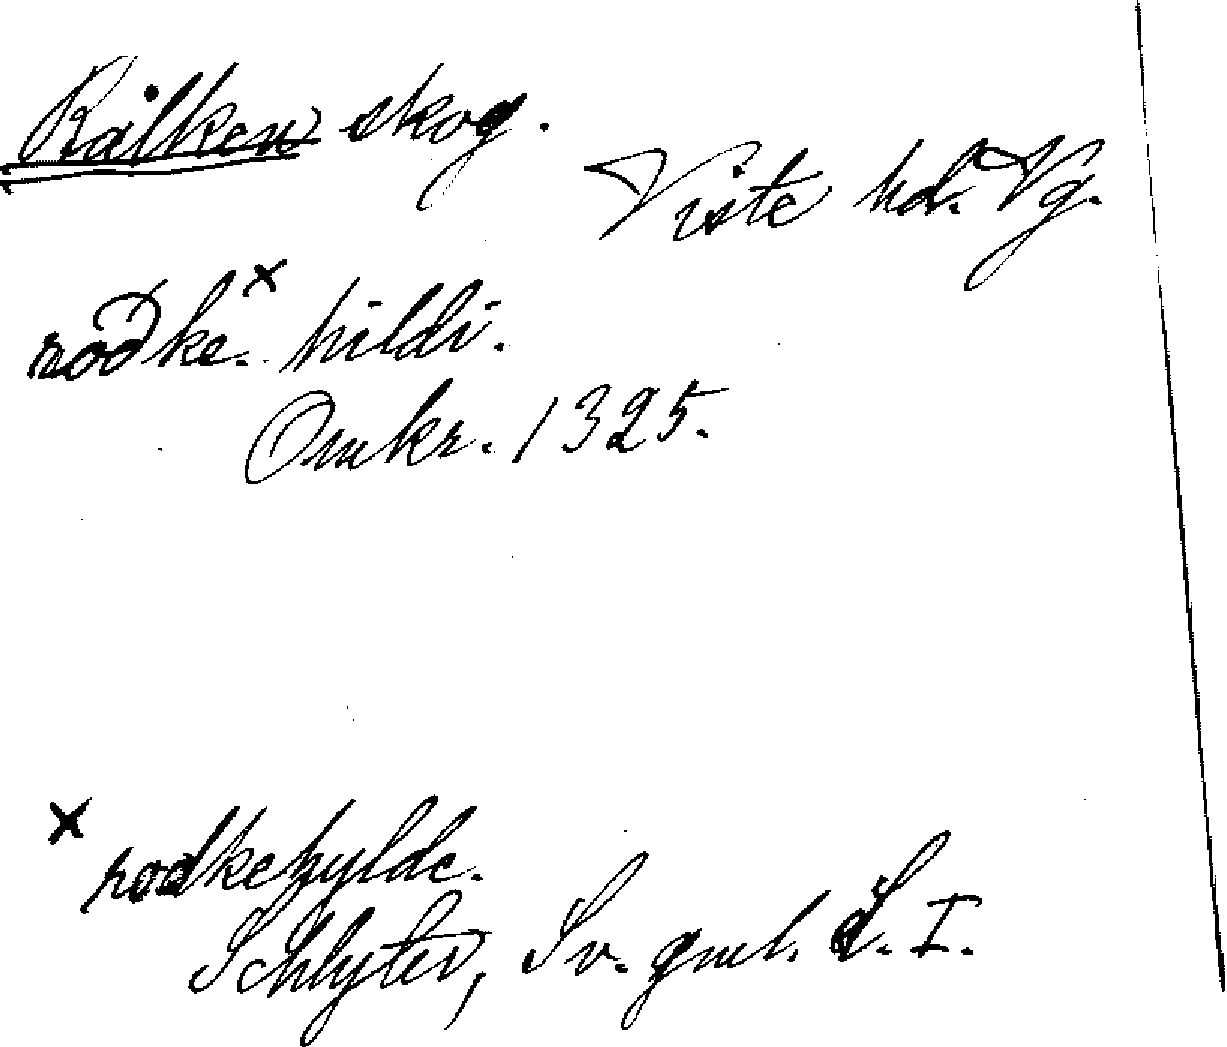 Rålken skog.
Viste hd. Vg.
rodke.ˣ hildi.
Omkr. 1325.
x rodkehylde.
Schlyter, Sv. gml. L. I.